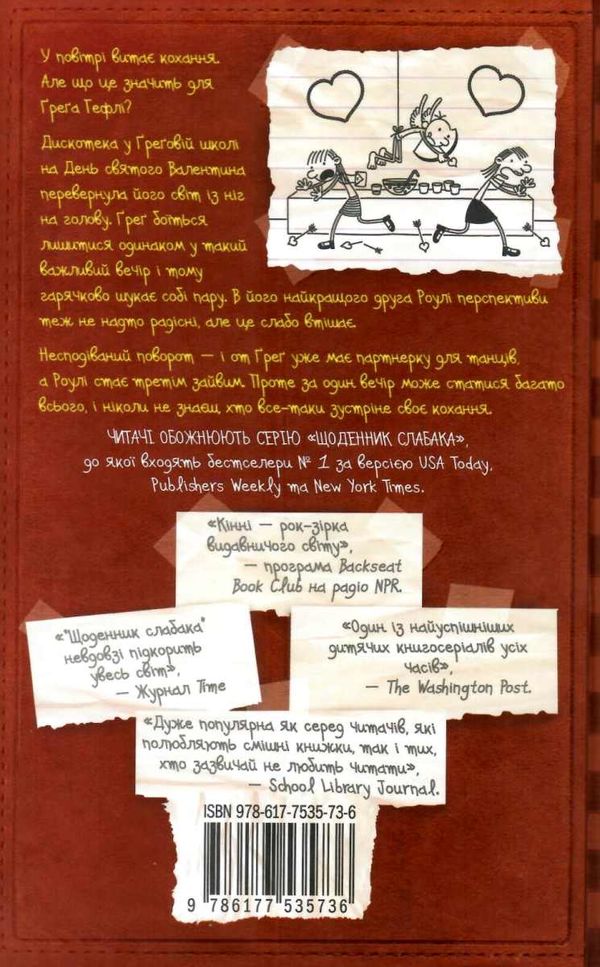 У повітрі витає кохання.
Але що це значить для
Ґреґа Гефлі?
Дискотека у Ґреговій школі
на День святого Валентина
перевернула його світ із ніг
на голову. Ґреґ боїться
лишитися одинаком у такий
важливий вечір і тому
гарячково шукає собі пару. В його найкращого друга Роулі перспективи
теж не надто радісні, але це слабо втішає.
Несподіваний поворот — і от Ґреґ уже має партнерку для танців,
а Роулі стає третім зайвим. Проте за один вечір може статися багато
всього, і ніколи не знаєш, хто все-таки зустріне своє кохання.
ЧИТАЧІ ОБОЖНЮЮТЬ СЕРІЮ «ЩОДЕННИК СЛАБАКА»,
до якої входять бестселери № 1 за версією USA Today,
Publishers Weekly та New York Times.
«Кінні — рок-зірка
видавничого світу»,
— програма Backseat
Book Club на радіо NPR.
«"Щоденник слабака"
невдовзі підкорить
увесь світ»,
— Журнал Time
«Один із найуспішніших
дитячих книгосеріалів усіх
часів»,
— The Washington Post.
«Дуже популярна як серед читачів, які
полюбляють смішні книжки, так і тих,
хто зазвичай не любить читати»,
— School Library Journal.
ISBN 978-617-7535-73-6
9 786177 535736